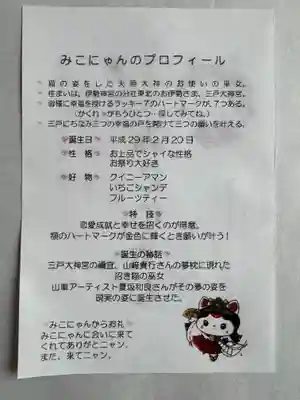 みこにゃんのプロフィール
猫の姿をした天照大神のお使いの巫女。
住まいは、伊勢神宮の分社東北のお伊勢さま、三戸大神宮。
皆様に幸福を授けるラッキー7のハートマークが、7つある。
(かくれがもうひとつ…探してみてね。)
三戸にちなみ三つの幸福の戸を開けて三つの願いを叶える。
誕生日 平成29年2月20日
性 格 お上品でシャイな性格
お祭り大好き
好 物 クイニーアマン
いちごシャンデ
フルーツティー
特 技
恋愛成就と幸せを招くのが得意。
額のハートマークが金色に輝くとき願いが叶う!
誕生の秘話
三戸大神宮の禰宜、山崎貴行さんの夢枕に現れた
招き猫の巫女
山車アーティスト夏坂和良さんがその夢の姿を
現実の姿に誕生させた。
みこにゃんからお礼
みこにゃんに会いに来て
くれてありがとニャン。
また、来てニャン。